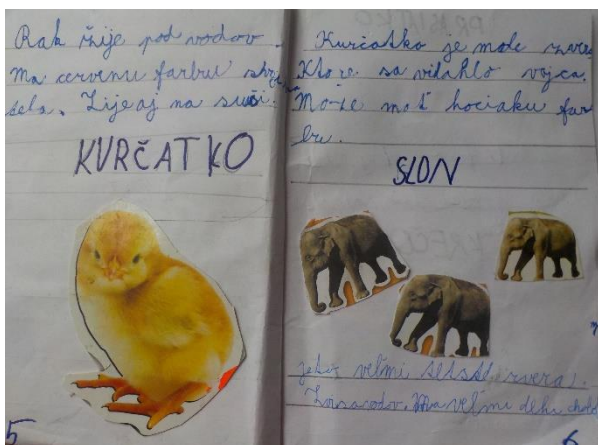 Rak žije pod vodou.
Ma cervenu farbu
tela. Žije aj na suši.
KURČATKO
5
Kurčatko je male zviera
Ktore sa viliahlo vajca.
Može mať hociaku far
bu.
SLON
je veľmi zviera.
Ma veľmi dlhi chobo
6